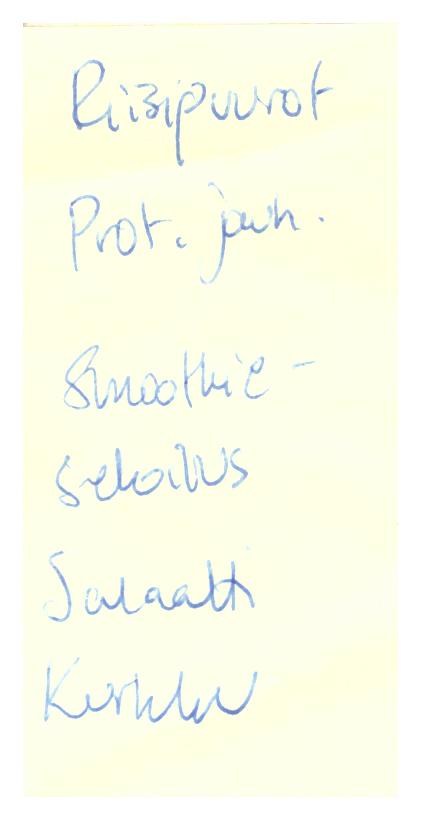 Riisipuurot
Prot. jauh.
Smoothie-
sekoitus
Salaatti
Kurkku